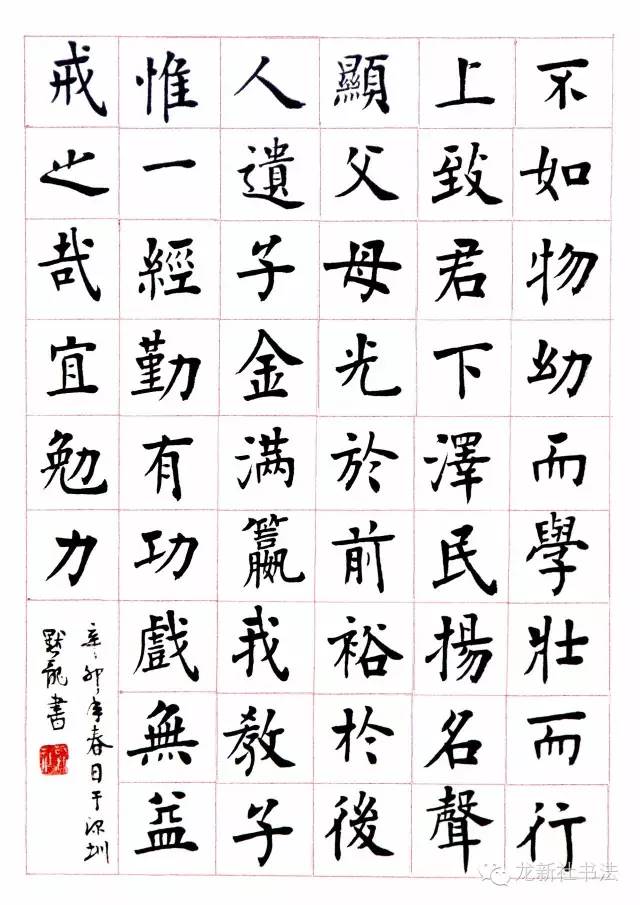 不如物幼而學壯而行
上致君下澤民揚名聲
顯父母光於前裕於後
人遺子金满籯我教子
惟一經勤有功戲無益
戒之哉宜勉力
辛卯年春日于深圳
默龍書
龙新社书法